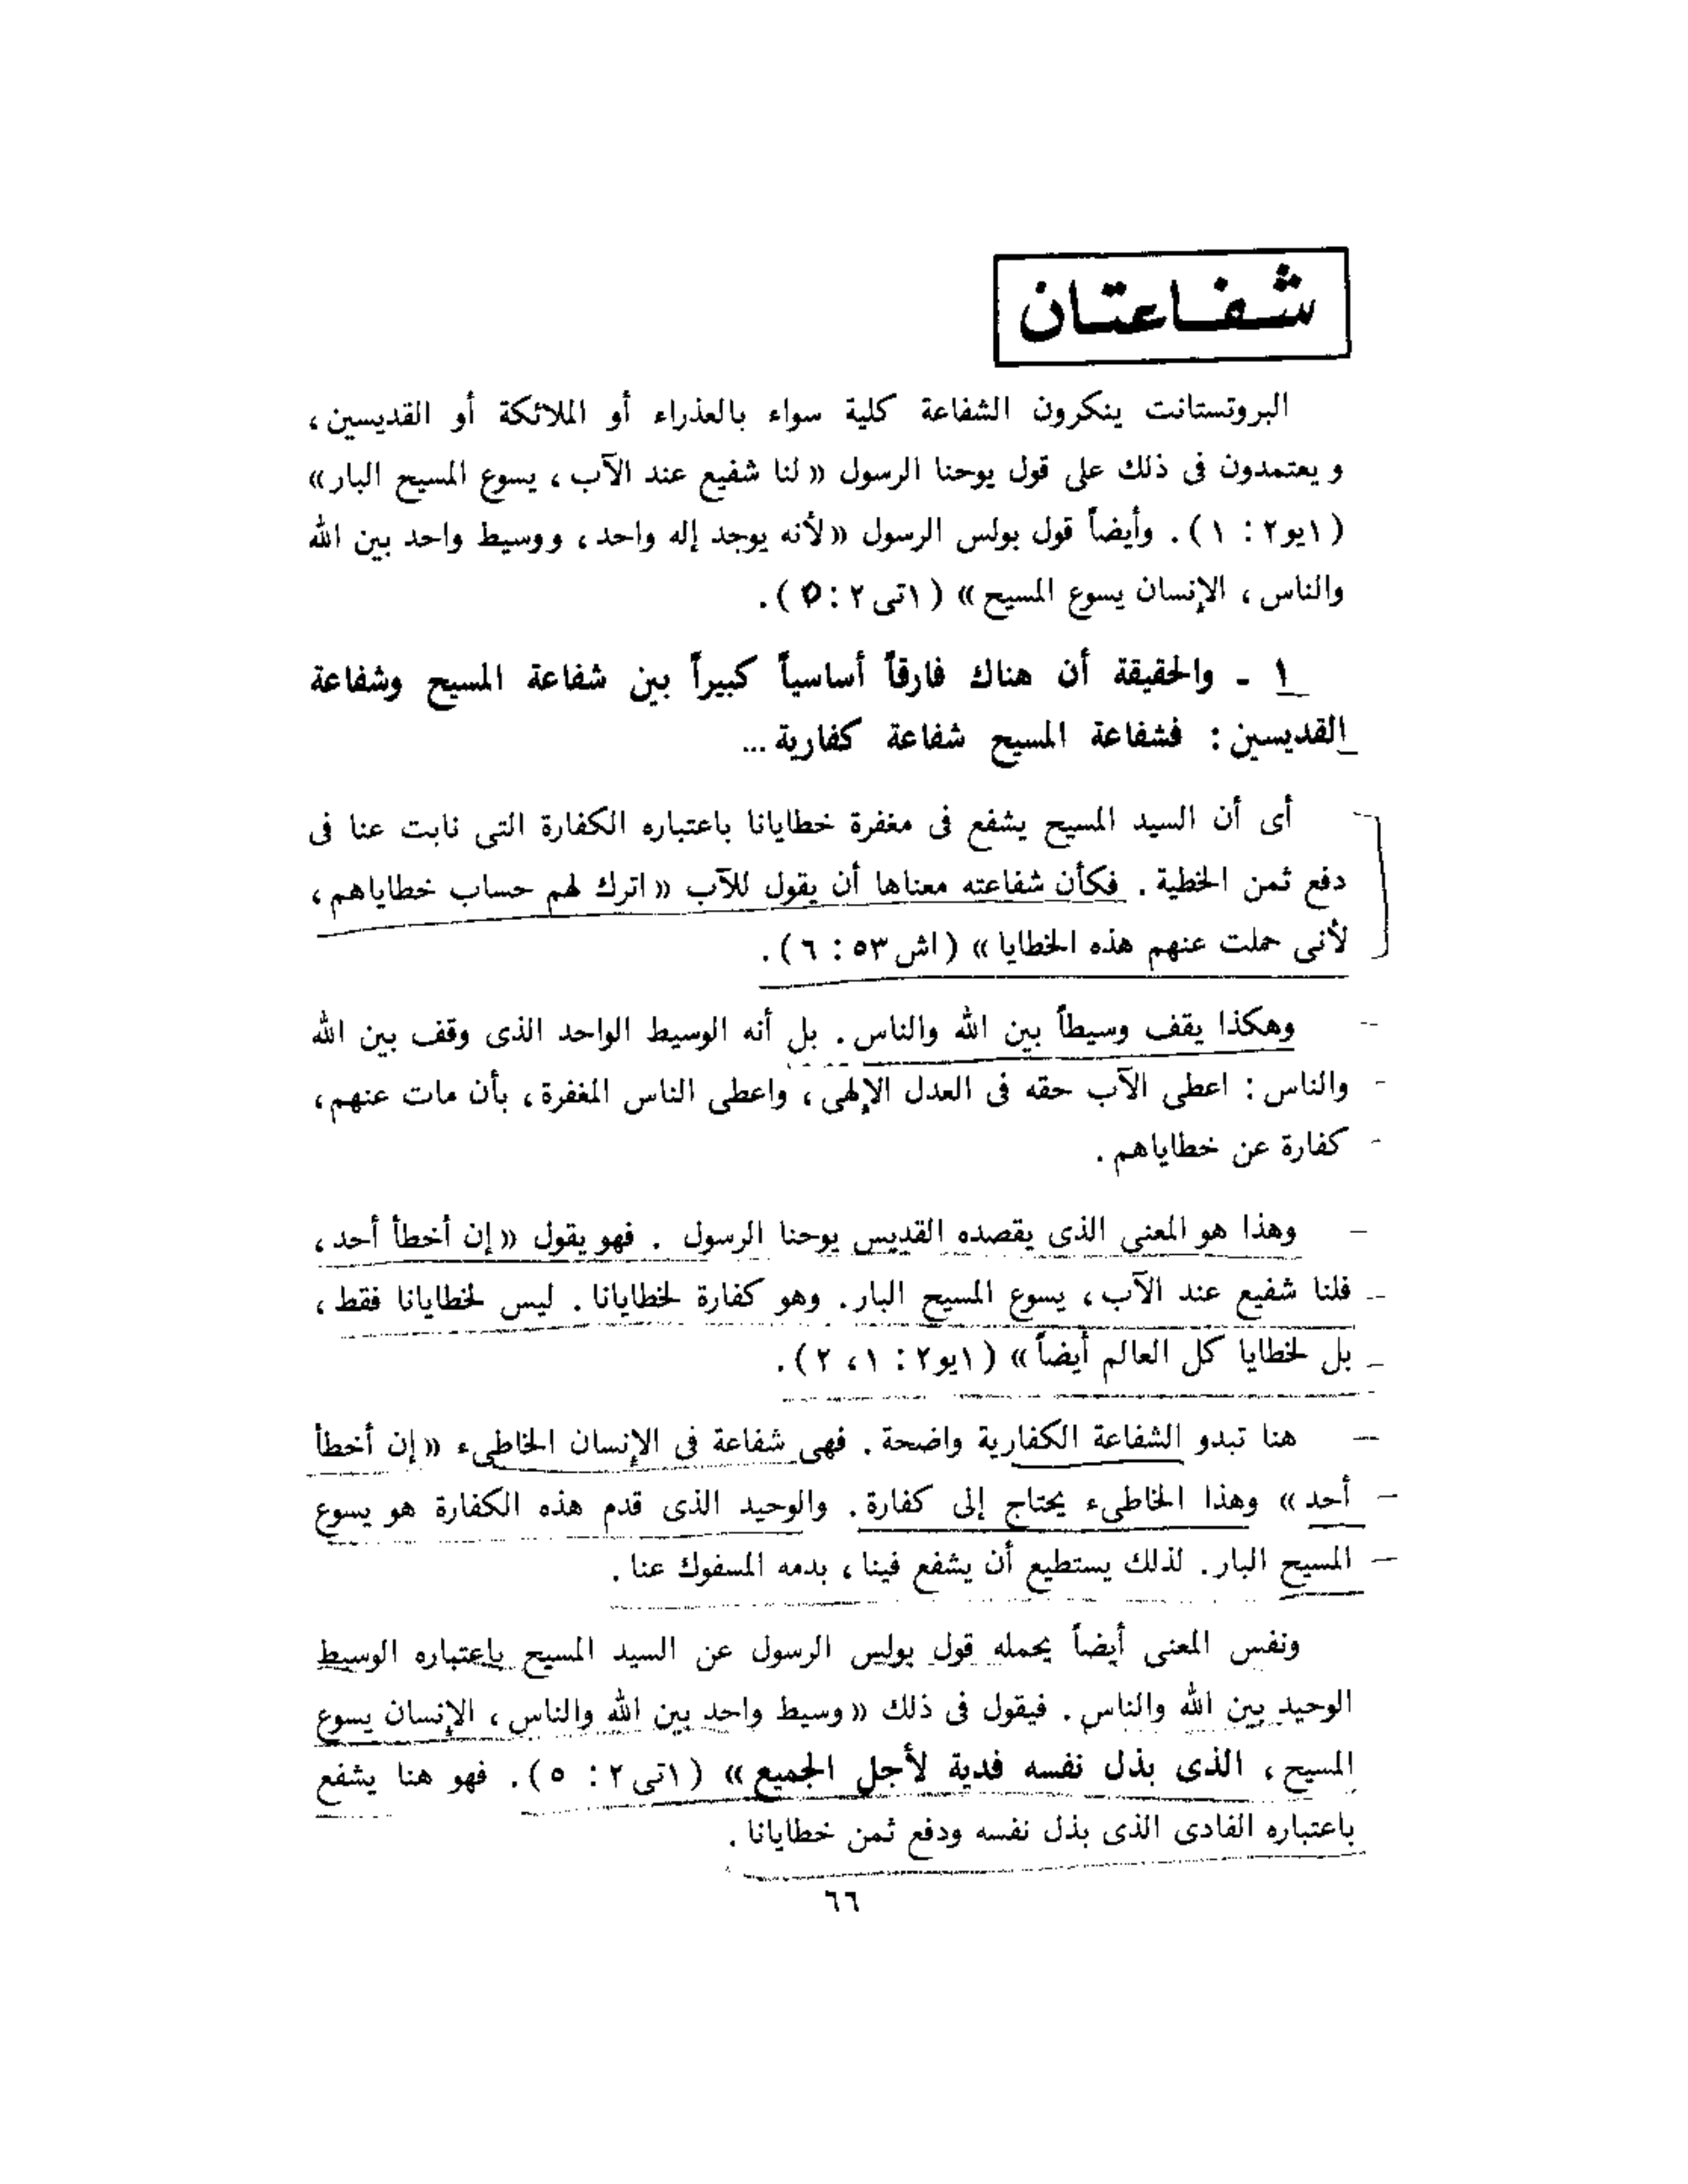 شفاعتان
البروتستانت ينكرون الشفاعة كلية سواء بالعذراء أو الملائكة أو القديسين ،
ويعتمدون فى ذلك على قول يوحنا الرسول « لنا شفيع عند الآب ، يسوع المسيح البار »
( ١يو٢ : ١ ) . وأيضاً قول بولس الرسول « لأنه يوجد إله واحد ، ووسيط واحد بين الله
والناس ، الإنسان يسوع المسيح » ( ١تى٢ : ٥ ) .
١ - والحقيقة أن هناك فارقاً أساسياً كبيراً بين شفاعة المسيح وشفاعة
القديسين : فشفاعة المسيح شفاعة كفارية ...
أى أن السيد المسيح يشفع فى مغفرة خطايانا باعتباره الكفارة التى نابت عنا فى
دفع ثمن الخطية . فكأن شفاعته معناها أن يقول للآب « اترك لهم حساب خطاياهم ،
لأنى حملت عنهم هذه الخطايا » ( اش٥٣ : ٦ ) .
وهكذا يقف وسيطاً بين الله والناس . بل أنه الوسيط الواحد الذى وقف بين الله
والناس : اعطى الآب حقه فى العدل الإلهى ، واعطى الناس المغفرة ، بأن مات عنهم ،
كفارة عن خطاياهم .
وهذا هو المعنى الذى يقصده القديس يوحنا الرسول . فهو يقول « إن أخطأ أحد ،
فلنا شفيع عند الآب ، يسوع المسيح البار . وهو كفارة لخطايانا . ليس لخطايانا فقط ،
بل لخطايا كل العالم أيضاً » ( ١يو٢ : ١ ، ٢ ) .
هنا تبدو الشفاعة الكفارية واضحة . فهى شفاعة فى الإنسان الخاطىء « إن أخطأ
أحد » وهذا الخاطىء يحتاج إلى كفارة . والوحيد الذى قدم هذه الكفارة هو يسوع
المسيح البار . لذلك يستطيع أن يشفع فينا ، بدمه المسفوك عنا .
ونفس المعنى أيضاً يحمله قول بولس الرسول عن السيد المسيح باعتباره الوسيط
الوحيد بين الله والناس . فيقول فى ذلك « وسيط واحد بين الله والناس ، الإنسان يسوع
المسيح ، الذى بذل نفسه فدية لأجل الجميع » ( ١تى٢ : ٥ ) . فهو هنا يشفع
باعتباره الفادى الذى بذل نفسه ودفع ثمن خطايانا .
٦٦